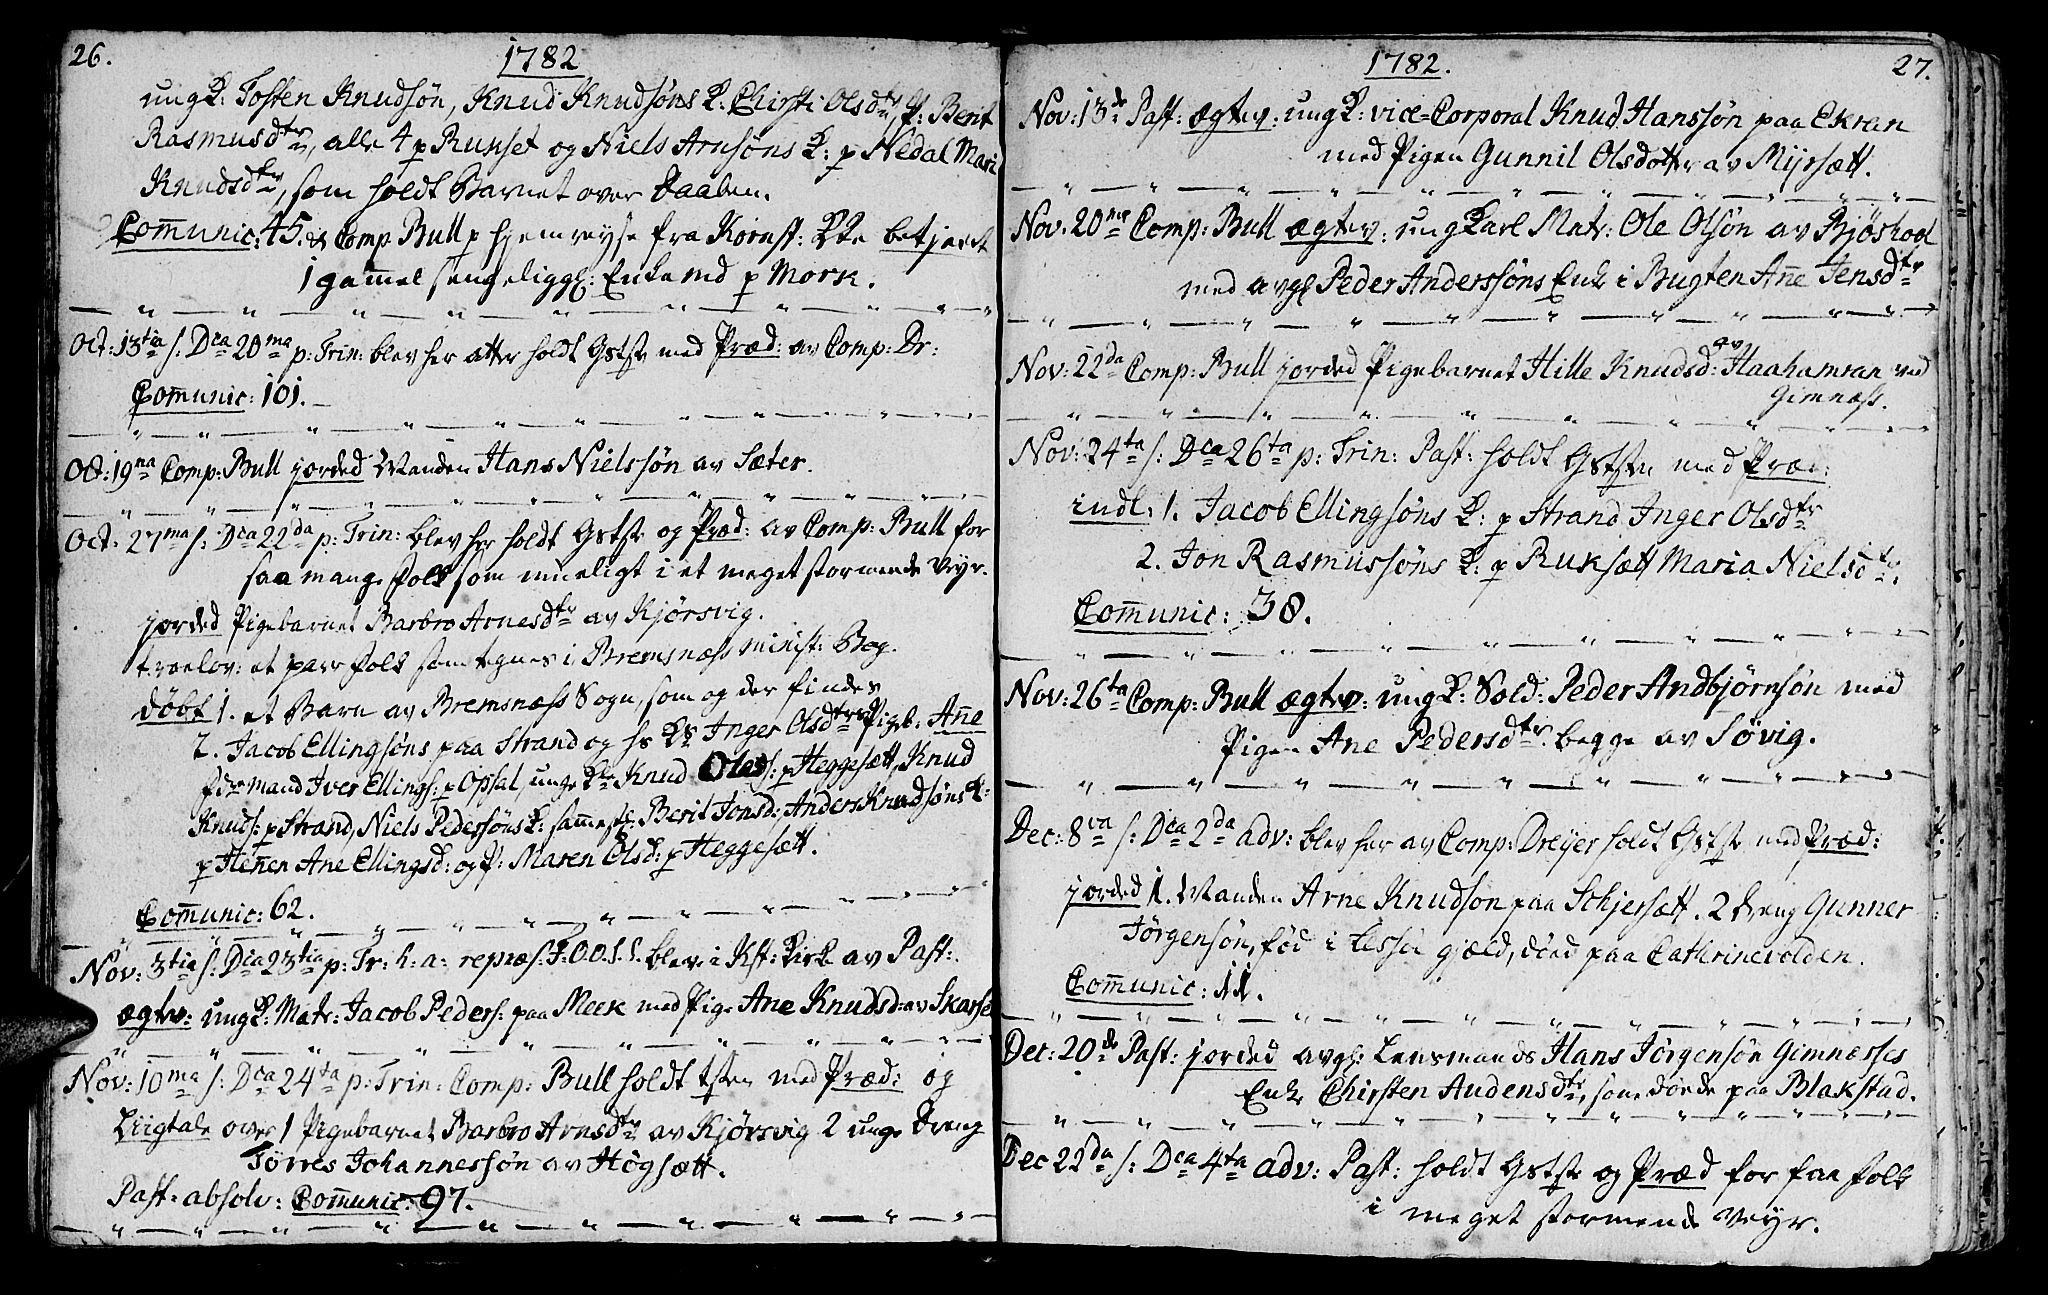 26.
1782
ung K: Tosten Knudsøn, Knud Knudsøns K: Chirsti Olsdtr, P: Berit
Rasmusdtr, alle 4 p Runset og Niels Arnsøns K: p Nedal Mari
Knudsdtr, som holdt Barnet over Daaben.
Com̄unic: 45. Comp Bull p hjemreyse fra Kornst: betjendt
1 gam̄el sengeliggh: Enke md p Mork.
Oct: 13tia s: Dca 20ma p: Trin: blev her atter holdt Gstste med Præd: av Comp: Dr:
Com̄unic: 101.
Oct: 19na Comp: Bull jorded Manden Hans Nielssøn av Sæter.
Oct: 27ma s: Dca 22da p: Trin: blev her holdt Gstste og Præd: av Comp: Bull for
saa mange folk som mueligt i et meget stormende Veyr.
jorded Pigebarnet Barbro Arnesdtr av Kjørsvig.
troelov: et par folk som tegnes i Bremsnæss minist: Bog.
døbt 1. et Barn av Bremsnæss Sogn, som og der findes
2. Jacob Ellingsøns paa Strand og hs Ks Inger Olsdtrs Pigeb: An̄e
f: Iver Ellings: p Opsal, unge Knud Oles: p Heggesætt, Knud
Knuds: p Strand, Niels Pedersøns K: sam̄este: Berit Jonsd: Anders Knudsøns K:
p Hen̄en Ane Ellingsd: og P: Maren Olsd: p Heggesætt.
Com̄unic: 62.
Nov: 3tia s: Dca 23tia p: Tr: h: a: repræs: F. O. O. S. S. blev i Kst: Kirk av Past:
ægtev: ung K: Matr: Jacob Peders: paa Meek med Pige Ane Knudsd: av Skarse
Nov: 10ma s: Dca 24ta p: Trin: Comp: Bull holdt tsten med Præd: og
Liigtale over 1 Pigebarnet Barbro Arnsdtr av Kjørsvig 2 unge Dreng
Torres Johannessøn av Høgsætt.
Past: absolv: Com̄unic: 97.
1782.
27.
Nov: 13de Past: ægtev: ung K: vice-Corporal Knud Hanssøn paa Ekran
med Pigen Gunnil Olsdotter av Myrsætt.
Nov. 20me Comp: Bull ægtev: ung Karl Matr: Ole Olsøn av Bjøshool
med avgl Peder Anderssøns Enke i Bugten An̄e Jensdtr
Nov: 22da Comp: Bull jorded Pigebarnet Hille Knudsd: av Haahamran ved
Gimnæss.
Nov: 24ta s: Dca 26ta p: Trin: Past: holdt Gststen med Præd:
indl: 1. Jacob Ellingsøns K: p Strand Inger Olsdtr
2. Jon Rasmussøns K: p Ruksætt Maria Nielsdtr.
Com̄unic: 38.
Nov: 26ta Comp: Bull ægtev: ung K: Sold: Peder Andbjørnsøn med
Pigen Ane Pedersdtr. begge av Søvig.
Dec: 8va s: Dca 2da adv: blev her av Comp: Dreyer holdt Gstste med Præd:
jorded 1. Manden Arne Knudsøn paa Schjersætt. 2 dreng Gunner
Jørgensøn, fød i Lessøe gjæld, død paa Cathrinevolden.
Com̄unic: 11.
Dec: 20de Past: jorded avgh: Lensmands Hans Jørgensøn Gimnæsses
Enke Chirsten Audensdtr, som døde paa Blakstad.
Dec 22da s: Dca 4ta adv: Past: holdt Gstste og Præd for faa folk
i meget stormende Veyr.